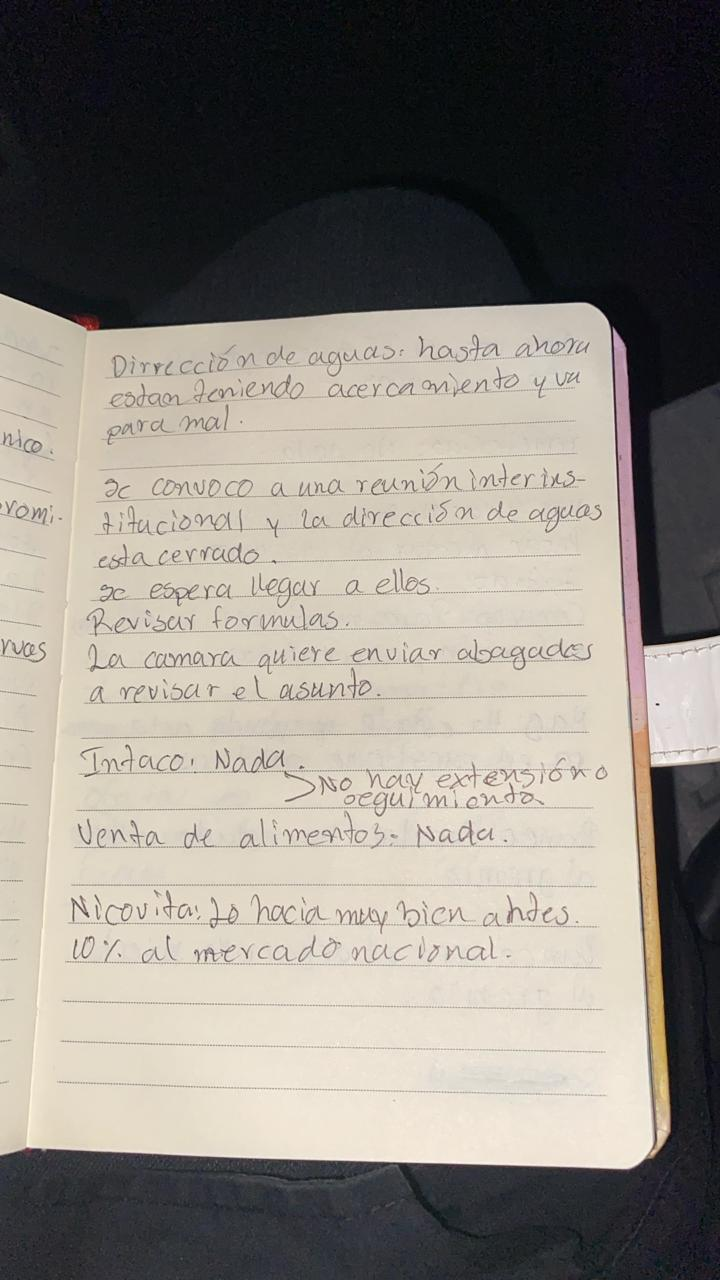 nico.
romi-
ruces
Dirrección de aguas: hasta ahora
estan teniendo acercamiento y va
para mal.
se convoco a una reunión interins-
titucional y la dirección de aguas
esta cerrado.
se espera llegar a ellos.
Revisar formulas.
La camara quiere enviar abagados
a revisar el asunto.
Intaco: Nada.
>No hay extensión o
seguimiento.
Venta de alimentos: Nada.
Nicovita: Lo hacia muy bien antes.
10% al mercado nacional.